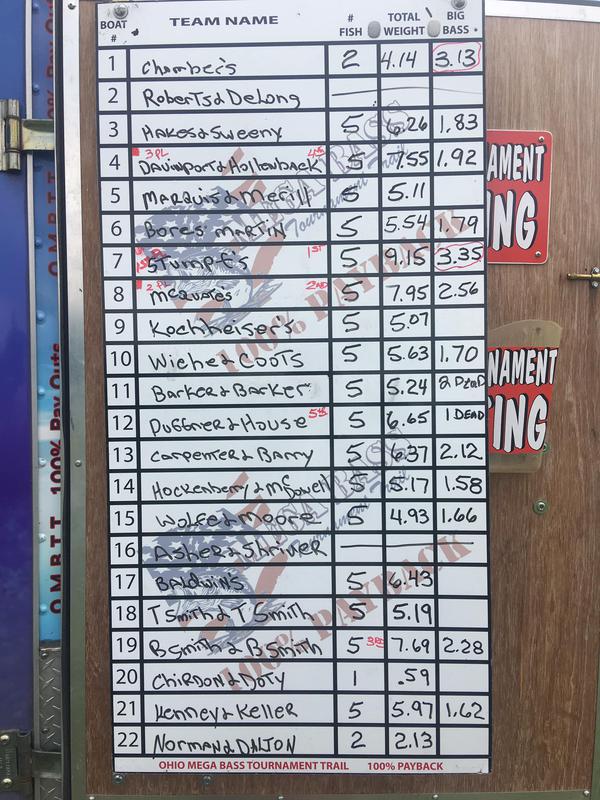 BOAT # TEAM NAME # FISH TOTAL WEIGHT BIG BASS
1 Chamber's 2 4.14 3.13
2 Roberts & DeLong
3 Hakes & Sweeny 5 6.26 1.83
4 3 PL Davinport & Hollenback 4th 5 7.55 1.92
5 Marquis & Merill 5 5.11
6 Bores MARTIN 5 5.54 1.79
7 Stumpf's 1ST 5 9.15 3.35
8 2 PL McQuate's 2ND 5 7.95 2.56
9 Kochheiser's 5 5.07
10 Wiche & Coots 5 5.63 1.70
11 Barker & Barker 5 5.24 2 Dead
12 Duffner & House 5th 5 6.65 1 DEAD
13 Carpenter & Barry 5 6.37 2.12
14 Hockenberry & McDowell 5 5.17 1.58
15 Wolfe & Moore 5 4.93 1.66
16 Asher & Shriver
17 BALDWINS 5 6.43
18 T Smith & T Smith 5 5.19
19 B Smith & B Smith 5 3RD 7.69 2.28
20 Chirdon & Doty 1 .59
21 Kenney & Keller 5 5.97 1.62
22 Norman & DALTON 2 2.13
OHIO MEGA BASS TOURNAMENT TRAIL 100% PAYBACK
AMENT
NG
NAMENT
ING
O.M.B.T.T. 100% Pay Outs